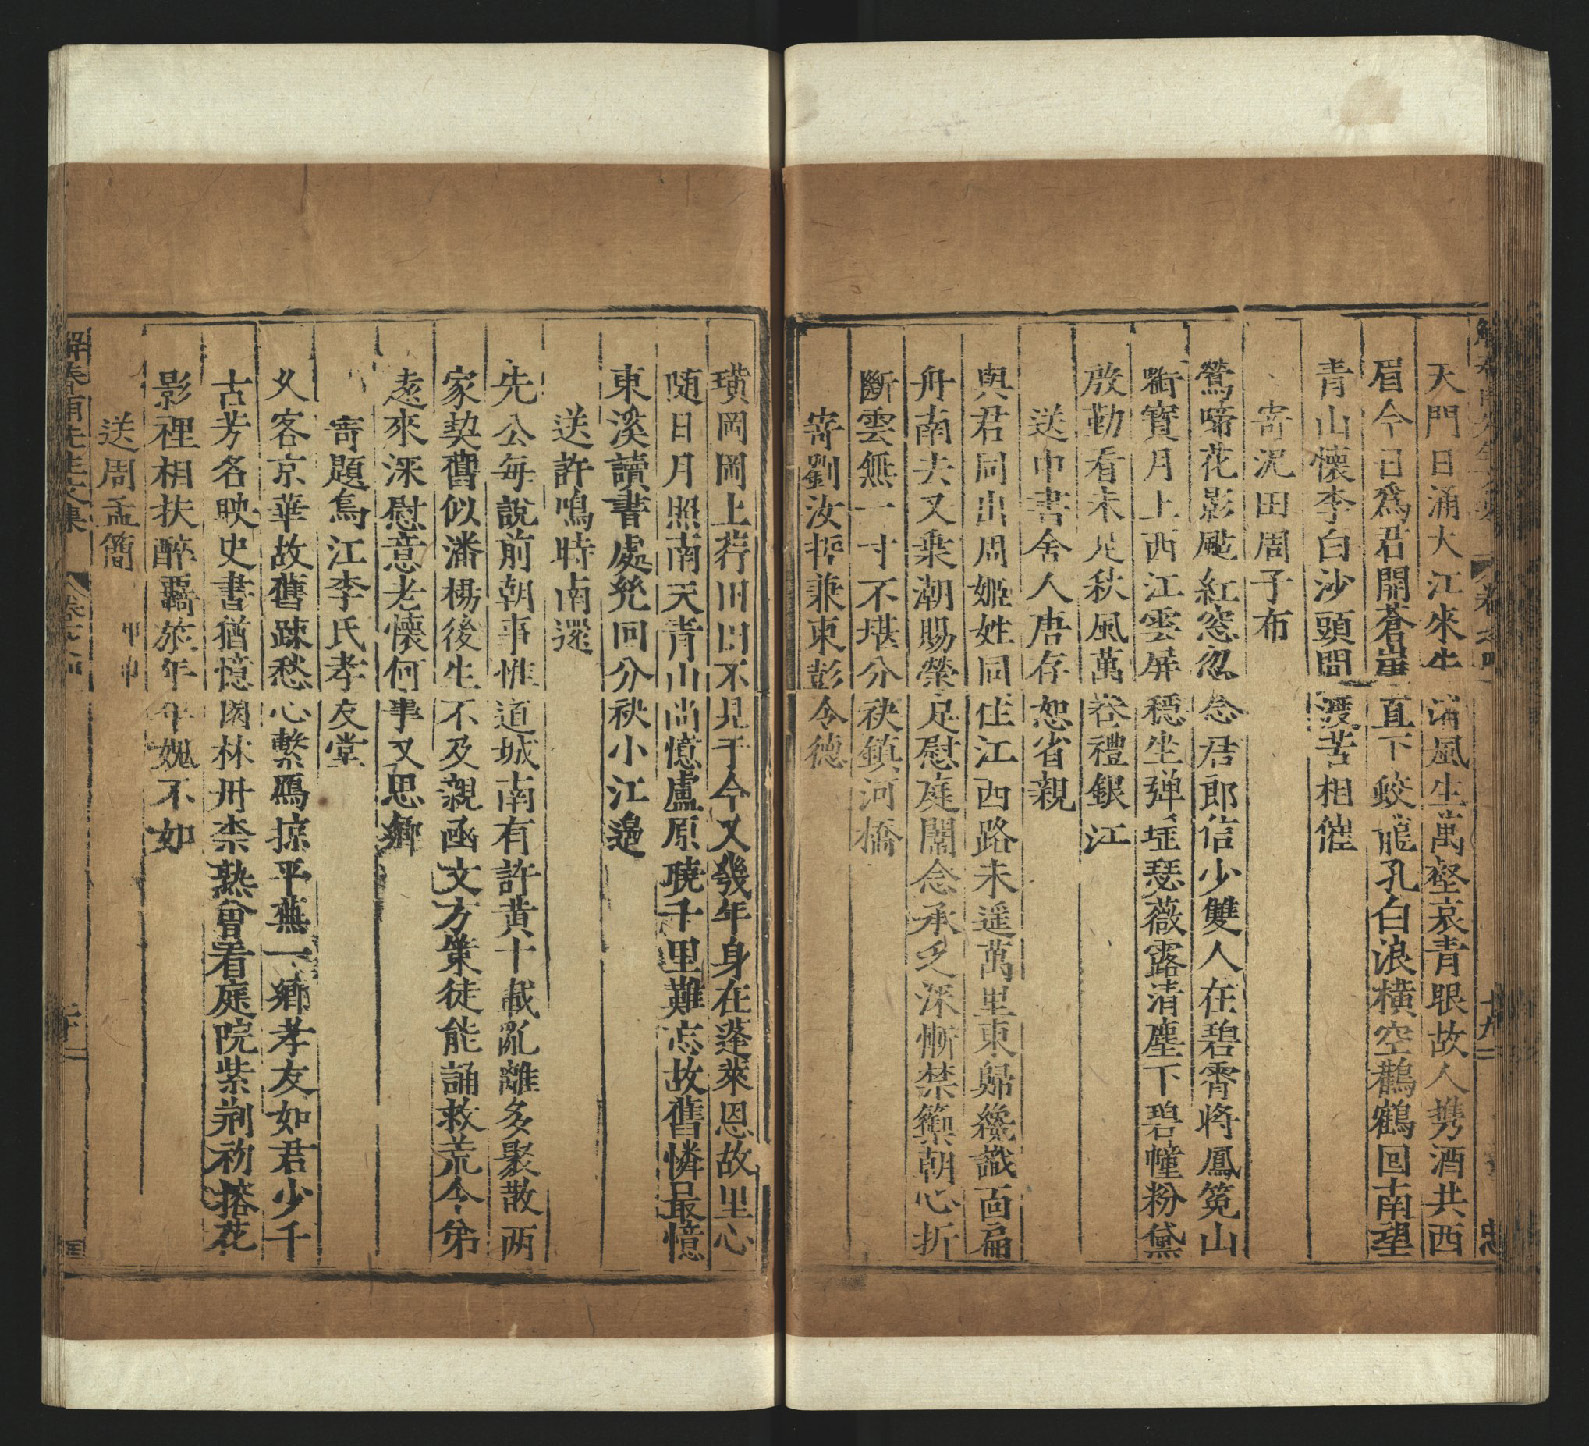 天門日涌大江來牛渚風生萬壑哀青眼故人携酒共西
眉今日爲君開蒼崖直下蛟龍孔白浪橫空鸛鶴回南望
青山懷李白沙頭間渡苦相催
寄泥田周子布
鶯啼花影颭紅窓忽念君郎信少雙人在碧霄將鳳筦山
銜寶月上西江雲屏穩坐弹瑟薇露清塵下碧幢粉黛
殷勤看未足秋風萬卷禮銀江
送中書舍人唐存恕省親
與君同出周姬姓同住江西路未遥萬里東歸纔識面扁
舟南去又乗潮賜榮足慰庭闈念承乏深慚禁籞朝心折
斷雲無一寸不堪分袂鎮河橋
寄劉汝哲兼東彭令德
璜岡岡上荐田田不見于今又幾年身在蓬萊恩故里心
随日月照南天青山尚憶盧原曉千里難忘故舊憐最憶
東溪讀書處統回分袂小江邉
送許鳴時南還
先公每說前朝事惟道城南有許黄十載亂離多聚散两
家契舊似潘楊後生不及親函文方策徒能誦救荒令弟
遠來深慰意老懷何事又思鄉
寄題烏江李氏孝友堂
久客京華故舊踈愁心繫鴈掠平蕪一鄉孝友如君少千
古芳名映史書猶憶園林丹柰熟曾看庭院紫荆初搭花
影裡相扶醉覊旅年年媿不如
送周孟簡
解春雨先生文集
卷之四
十九